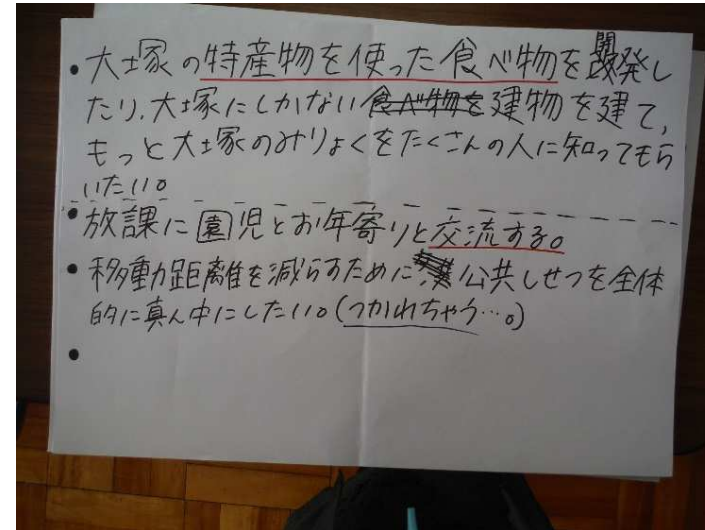 ・大塚の特産物を使った食べ物を開発し
たり、大塚にしかない建物を建て、
もっと大塚のみりょくをたくさんの人に知ってもら
いたい。
・放課に園児とお年寄りと交流する。
・移動距離を減らすために公共しせつを全体
的に真ん中にしたい。(つかれちゃう…。)
・